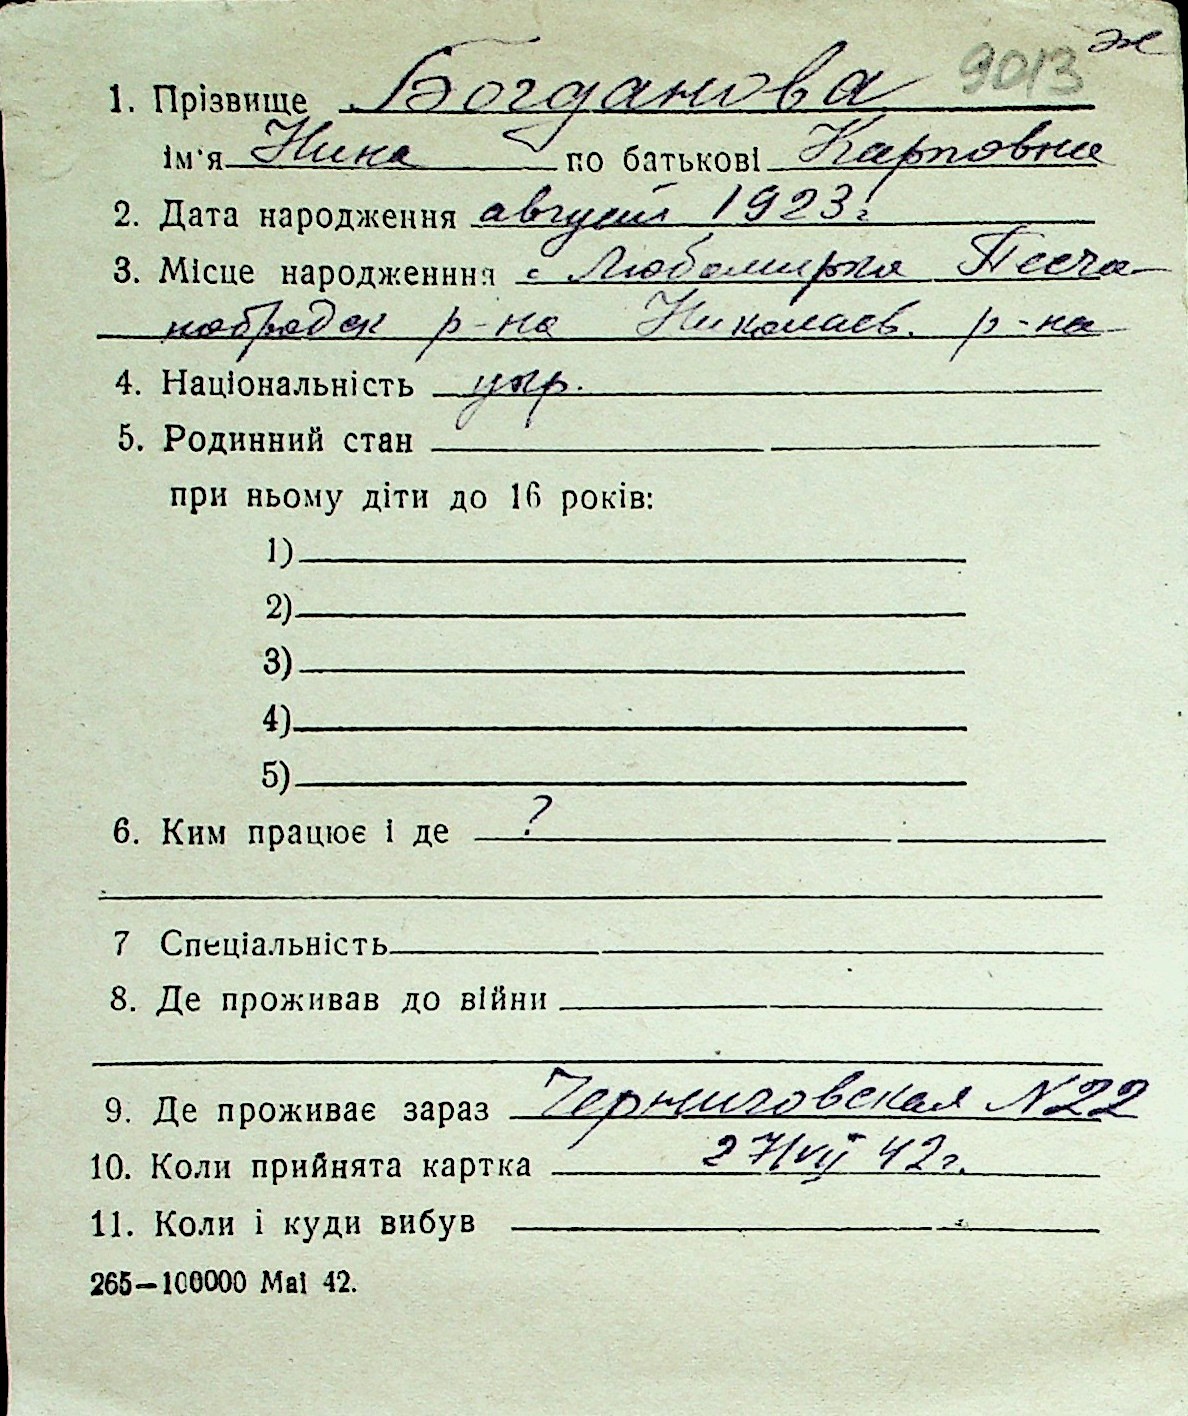 9013 ж
1. Прізвище Богданова
ім'я Нина по батькові Карповна
2. Дата народження август 1923 г.
3. Місце народженння с Любомирка Песча-
нобродск р-на Николаев. р-на
4. Національність укр.
5. Родинний стан
при ньому діти до 16 років:
1)
2)
3)
4)
5)
6. Ким працює і де ?
7 Спеціальність
8. Де проживав до війни
9. Де проживає зараз Черниговская N22
10. Коли прийнята картка 27/VII 42 г.
11. Коли і куди вибув
265—100000 Маі 42.